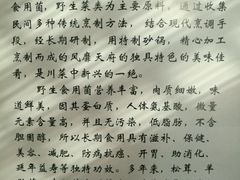 食用菌，野生菜类为主要原料，通过收集
民间多种传统烹制方法，结合现代烹调手
段，经长期研制，用特制砂锅，精心加工
烹制而成的风靡天府的独具特色的美味佳
肴，是川菜中新兴的一绝。
野生食用菌营养丰富，肉质细嫩，味
道鲜美，因其蛋白质，人体氨基酸，微量
元素含量高，并且无污染，低脂肪，不含
胆固醇，所以长期食用具有滋补、保健、
美容、减肥、防病抗癌、开胃、助消化、
延年益寿等独特功效。多年来，松茸、羊